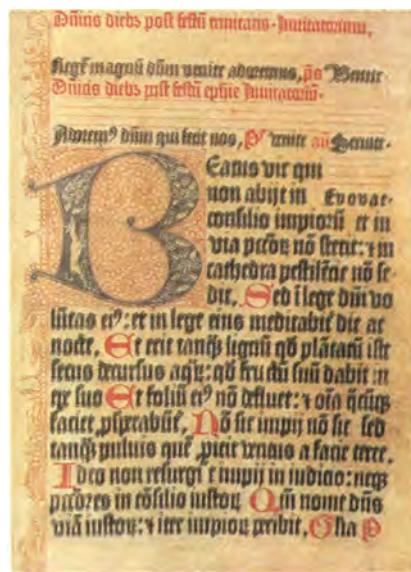 Dñicis diebꝫ post festū trinitatis. Inuitatorium.
Regē magnū dñm venite adoremus, p̄s Venite.
Dñicis diebꝫ post festū ephie Inuitatoriū.
Adoremꝰ dñm qui fecit nos, p̄s venite añ Seruite.
Beatus vir qui
non abijt in Euouae
consilio impioꝝ et in
via pccōꝝ nō stetit: ⁊ in
cathedra pestilētie nō se
dit, Sed ī lege dñi vo
lūtas eiꝰ: et in lege eius meditabit̄ die ac
nocte, Et erit tanqꝫ lignū qd̄ plātatū ē iste
secus decursus aqꝝ: qd̄ fructū suū dabit in
tꝑe suo Et foliū eiꝰ nō defluet: ⁊ oīa q̄cūqꝫ
faciet ꝓsperabūt̄, Nō sic impij nō sic sed
tanqꝫ puluis quē ꝓicit ventus a facie terre,
Ideo non resurgūt impij in iudicio: neqꝫ
pccōres in cōsilio iustoꝝ Qm̄ nouit dñs
viā iustoꝝ: ⁊ iter impioꝝ peribit, Gĺia P